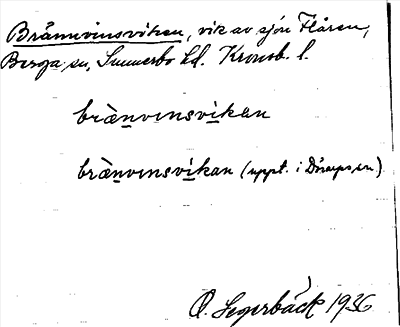 Brännvinsviken, vik av sjön Flåren,
Berga sn, Sunnerbo hd. Kronob. l.
brànvɩnsvikan
brànvɩnsvikan (uppt. i Dörarps sn)
O. Segerbäck 1936